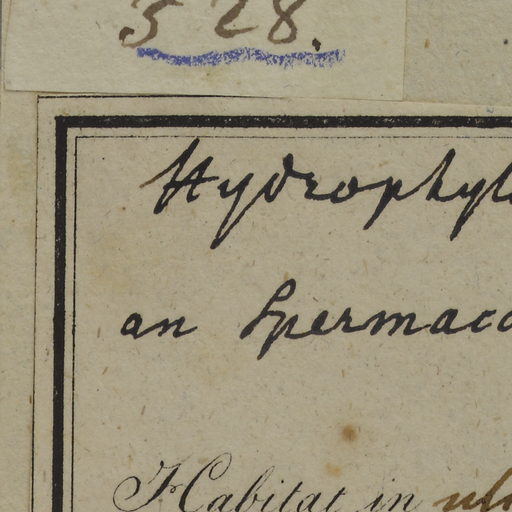 528.
Hydrophyl
an Spermaco
Habitat in